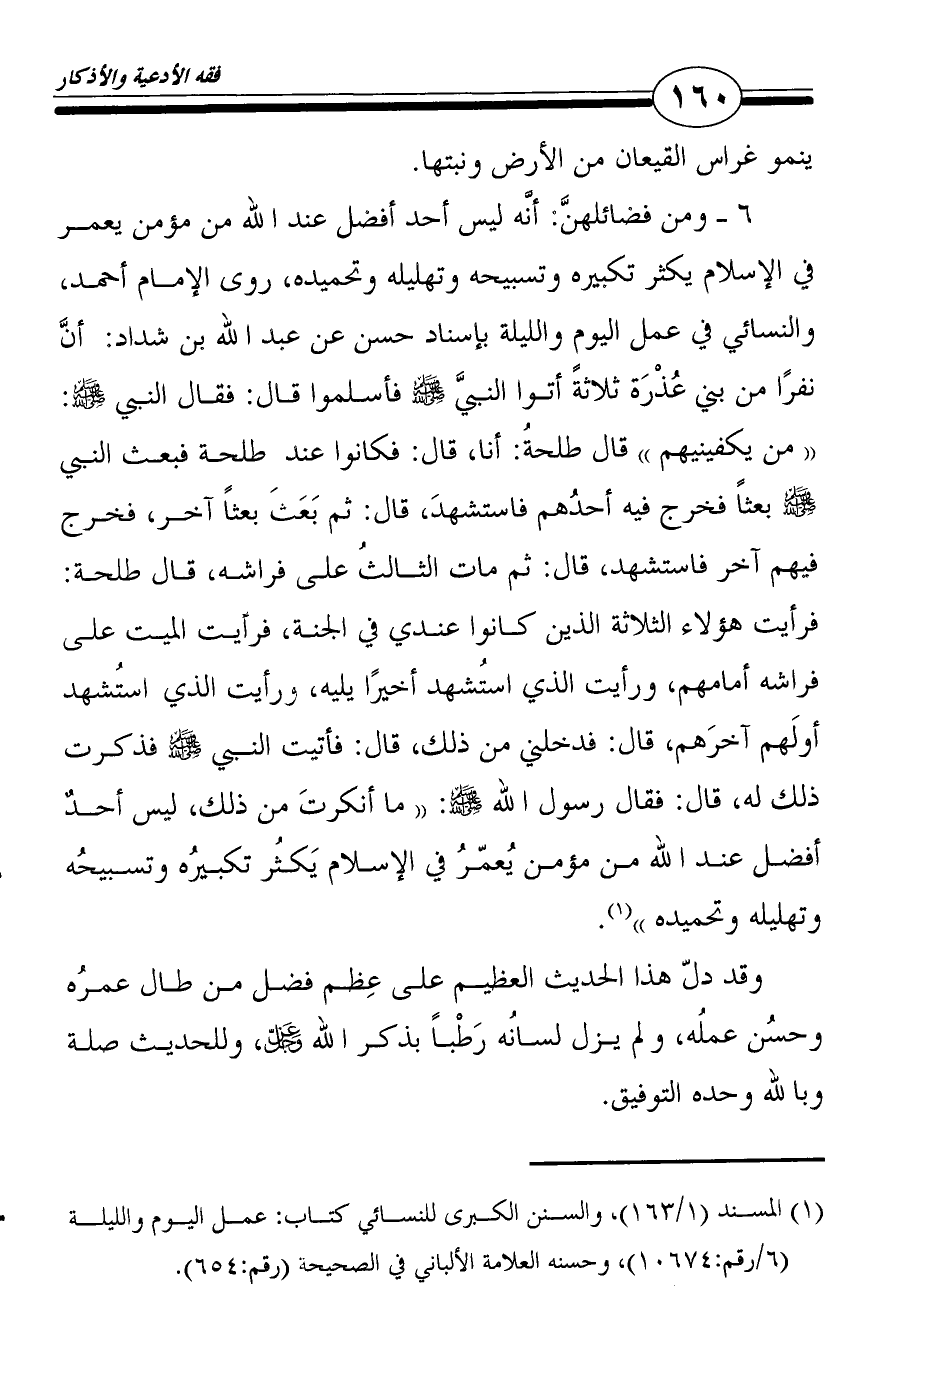 فقه الأدعية والأذكار
١٦٠
ينمو غراس القيعان من الأرض ونبتها.
٦ ـ ومن فضائلهنَّ: أنَّه ليس أحد أفضل عند الله من مؤمن يعمر
في الإسلام يكثر تكبيره وتسبيحه وتهليله وتحميده، روى الإمام أحمد،
والنسائي في عمل اليوم والليلة بإسناد حسن عن عبد الله بن شداد: أنَّ
نفرًا من بني عُذْرَة ثلاثةً أتوا النبيَّ ﷺ فأسلموا قال: فقال النبي ﷺ:
(( من يكفينيهم )) قال طلحةُ: أنا، قال: فكانوا عند طلحة فبعث النبي
ﷺ بعثاً فخرج فيه أحدُهم فاستشهدَ، قال: ثم بَعَثَ بعثاً آخر، فخرج
فيهم آخر فاستشهد، قال: ثم مات الثالثُ على فراشه، قال طلحة:
فرأيت هؤلاء الثلاثة الذين كانوا عندي في الجنة، فرأيت الميت على
فراشه أمامهم، ورأيت الذي استُشهد أخيرًا يليه، ورأيت الذي استُشهد
أولَهم آخرَهم، قال: فدخلني من ذلك، قال: فأتيت النبي ﷺ فذكرت
ذلك له، قال: فقال رسول الله ﷺ: (( ما أنكرتَ من ذلك، ليس أحدٌ
أفضل عند الله من مؤمن يُعمّرُ في الإسلام يَكثُر تكبيرُه وتسبيحُه
وتهليله وتحميده ))(١).
وقد دلّ هذا الحديث العظيم على عِظم فضل من طال عمرُه
وحسُن عملُه، ولم يزل لسانُه رَطْباً بذكر الله عَزَّوَجَلَّ، وللحديث صلة
وبالله وحده التوفيق.
(١) المسند (١/١٦٣)، والسنن الكبرى للنسائي كتاب: عمل اليوم والليلة
(٦/رقم:١٠٦٧٤)، وحسنه العلامة الألباني في الصحيحة (رقم:٦٥٤).